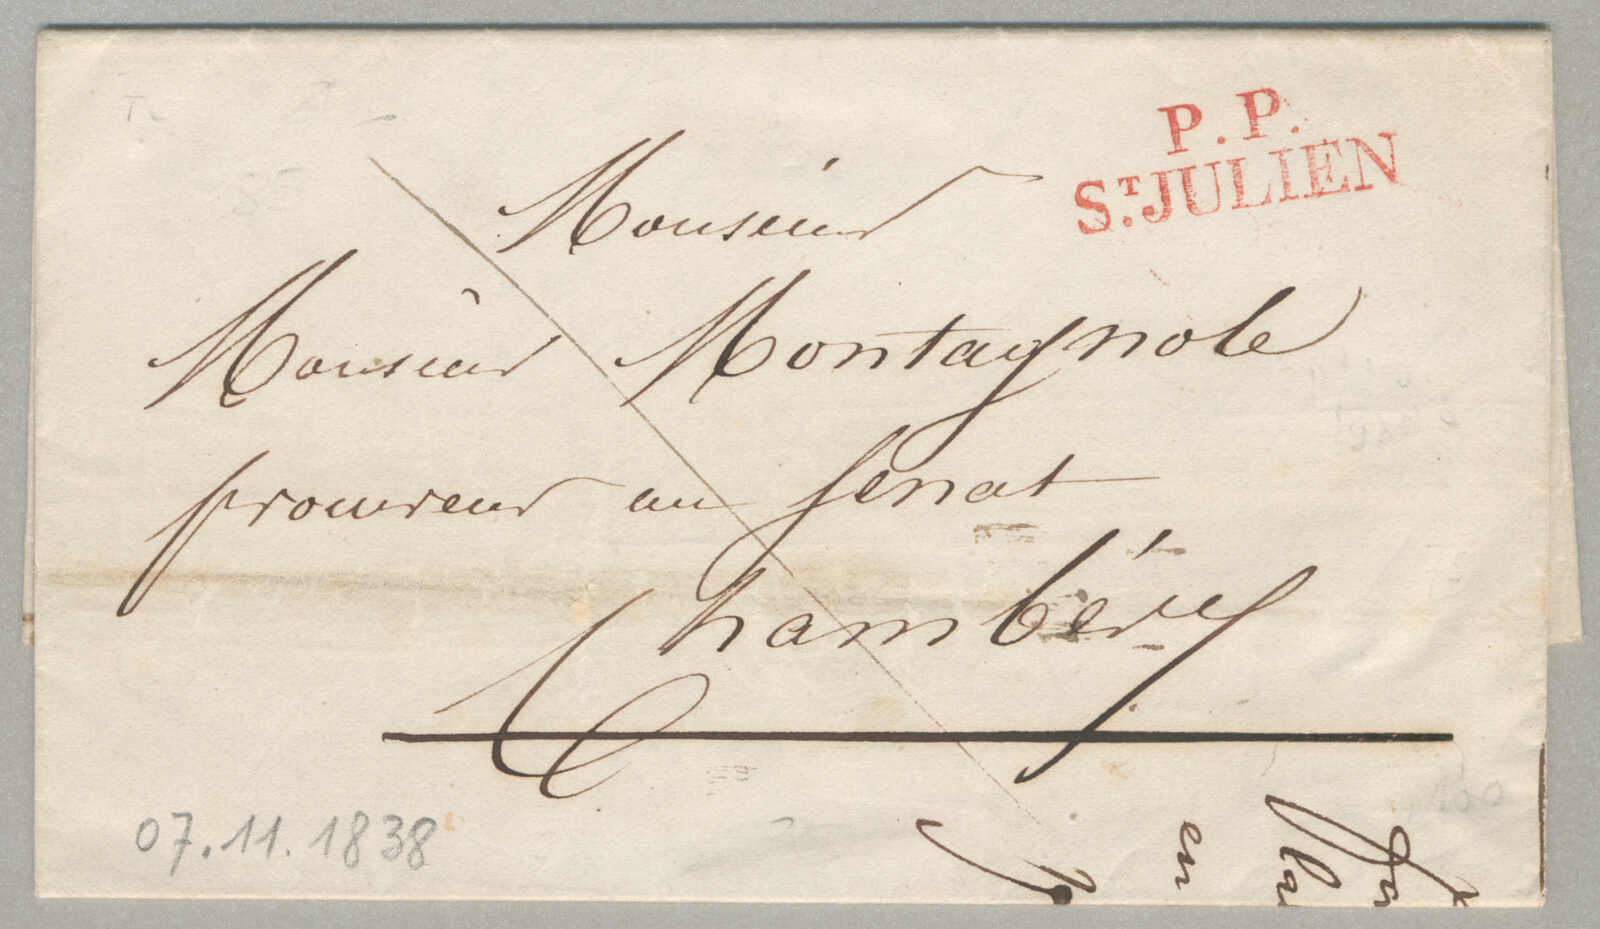 P.P.
Sᵀ. JULIEN
Monsieur
Monsieur Montagnole
procureur au Senat
Chambéry
07.11.1838
100
en